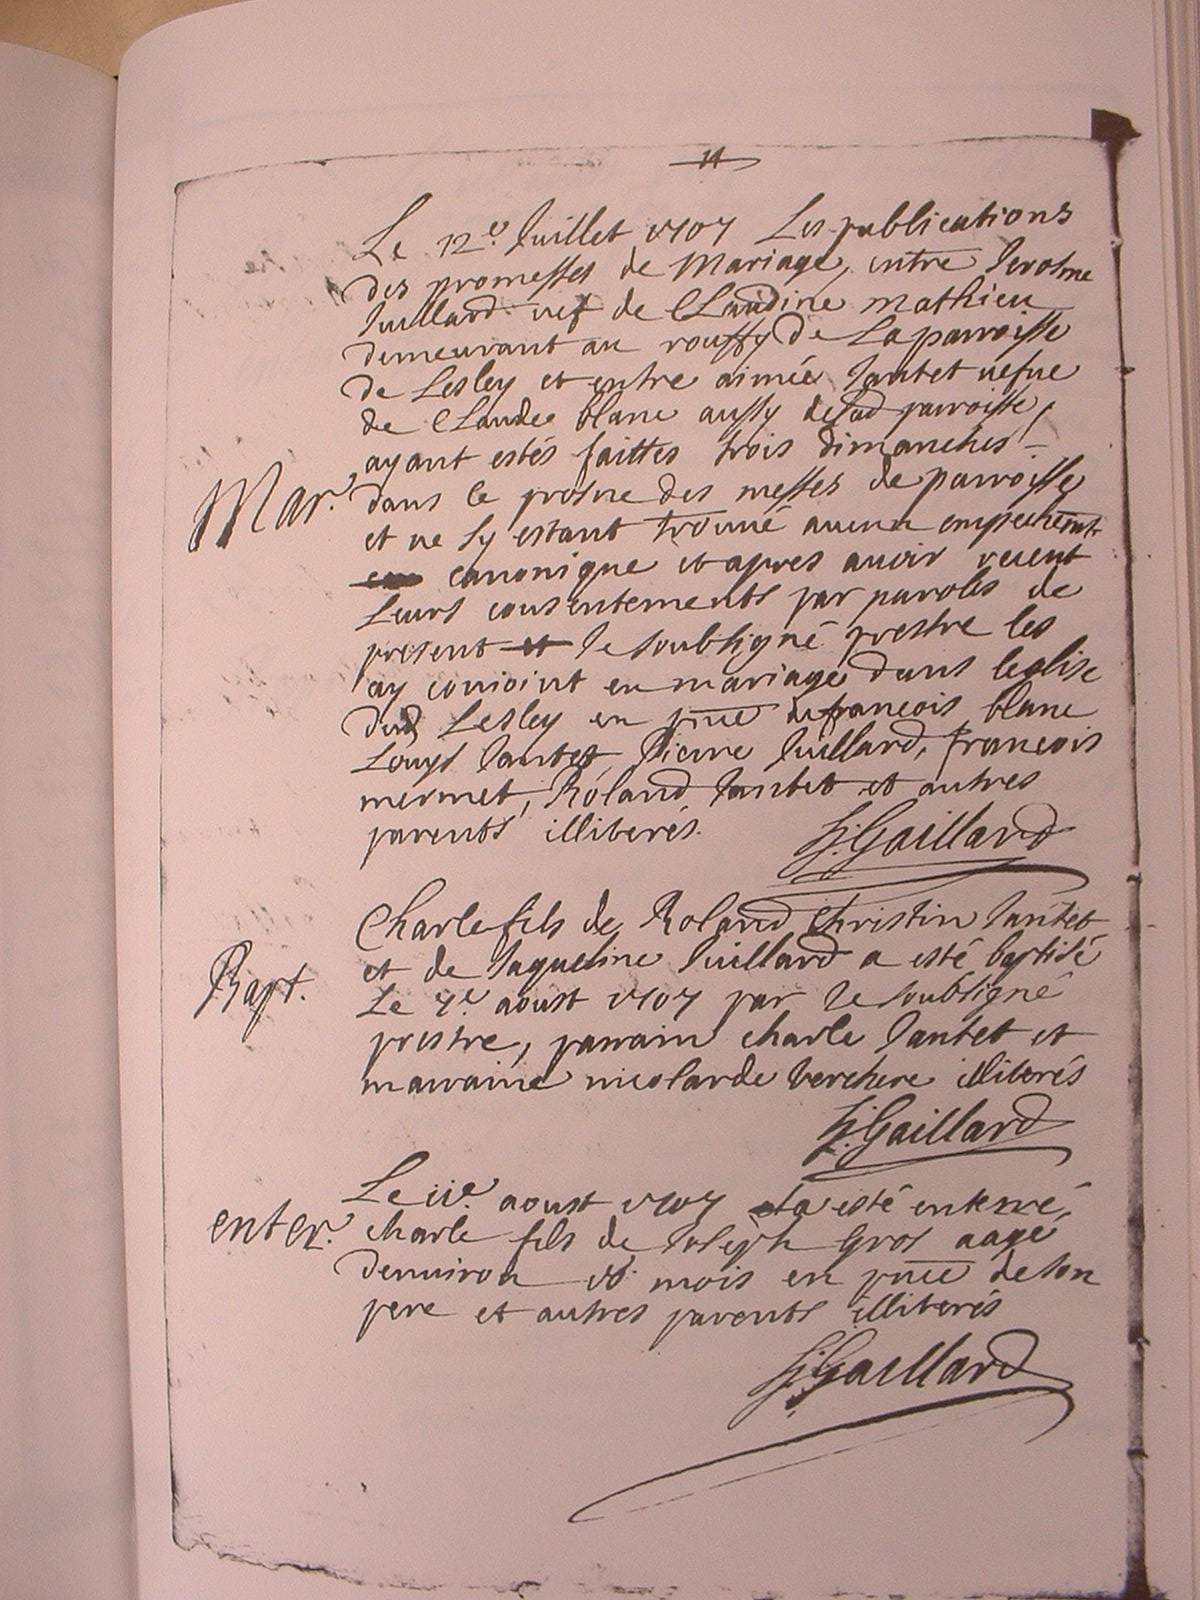 14
Le 12e Juillet 1707 Les publications
des promesses de Mariage, entre Jerosme
Juillard vef de Claudine mathieu
demeurant au rouffy de La parroisse
de Lesley et entre aimée Jantet vefue
de Claude blanc aussy de lad parroisse,
ayant estés faittes trois dimanches
Mar. dans le prosne des messes de parroisse
et ne sy estant trouué aucun empechemt
canonique et apres auoir receut
Leurs consentements par paroles de
present et Je soubsigné prestre les
ay conioint en mariage dans leglise
dud Lesley en pnce de francois blanc
Louys Jantet, Pierre Juillard, francois
mermet, Roland Jantet et autres
parents illiterés. Gaillard
Charle fils de Roland Christin Jantet
et de Jaqueline Juillard a esté baptisé
Bapt. Le 7e aoust 1707 par Je soubsigné
prestre, parrain charle Jantet et
marraine nicolarde verchere illiterés
Gaillard
Le 11e aoust 1707 a esté enterré,
enter. charle fils de Joseph Gros aagé
denuiron mois en pnce de son
pere et autres parents illiterés
Gaillard